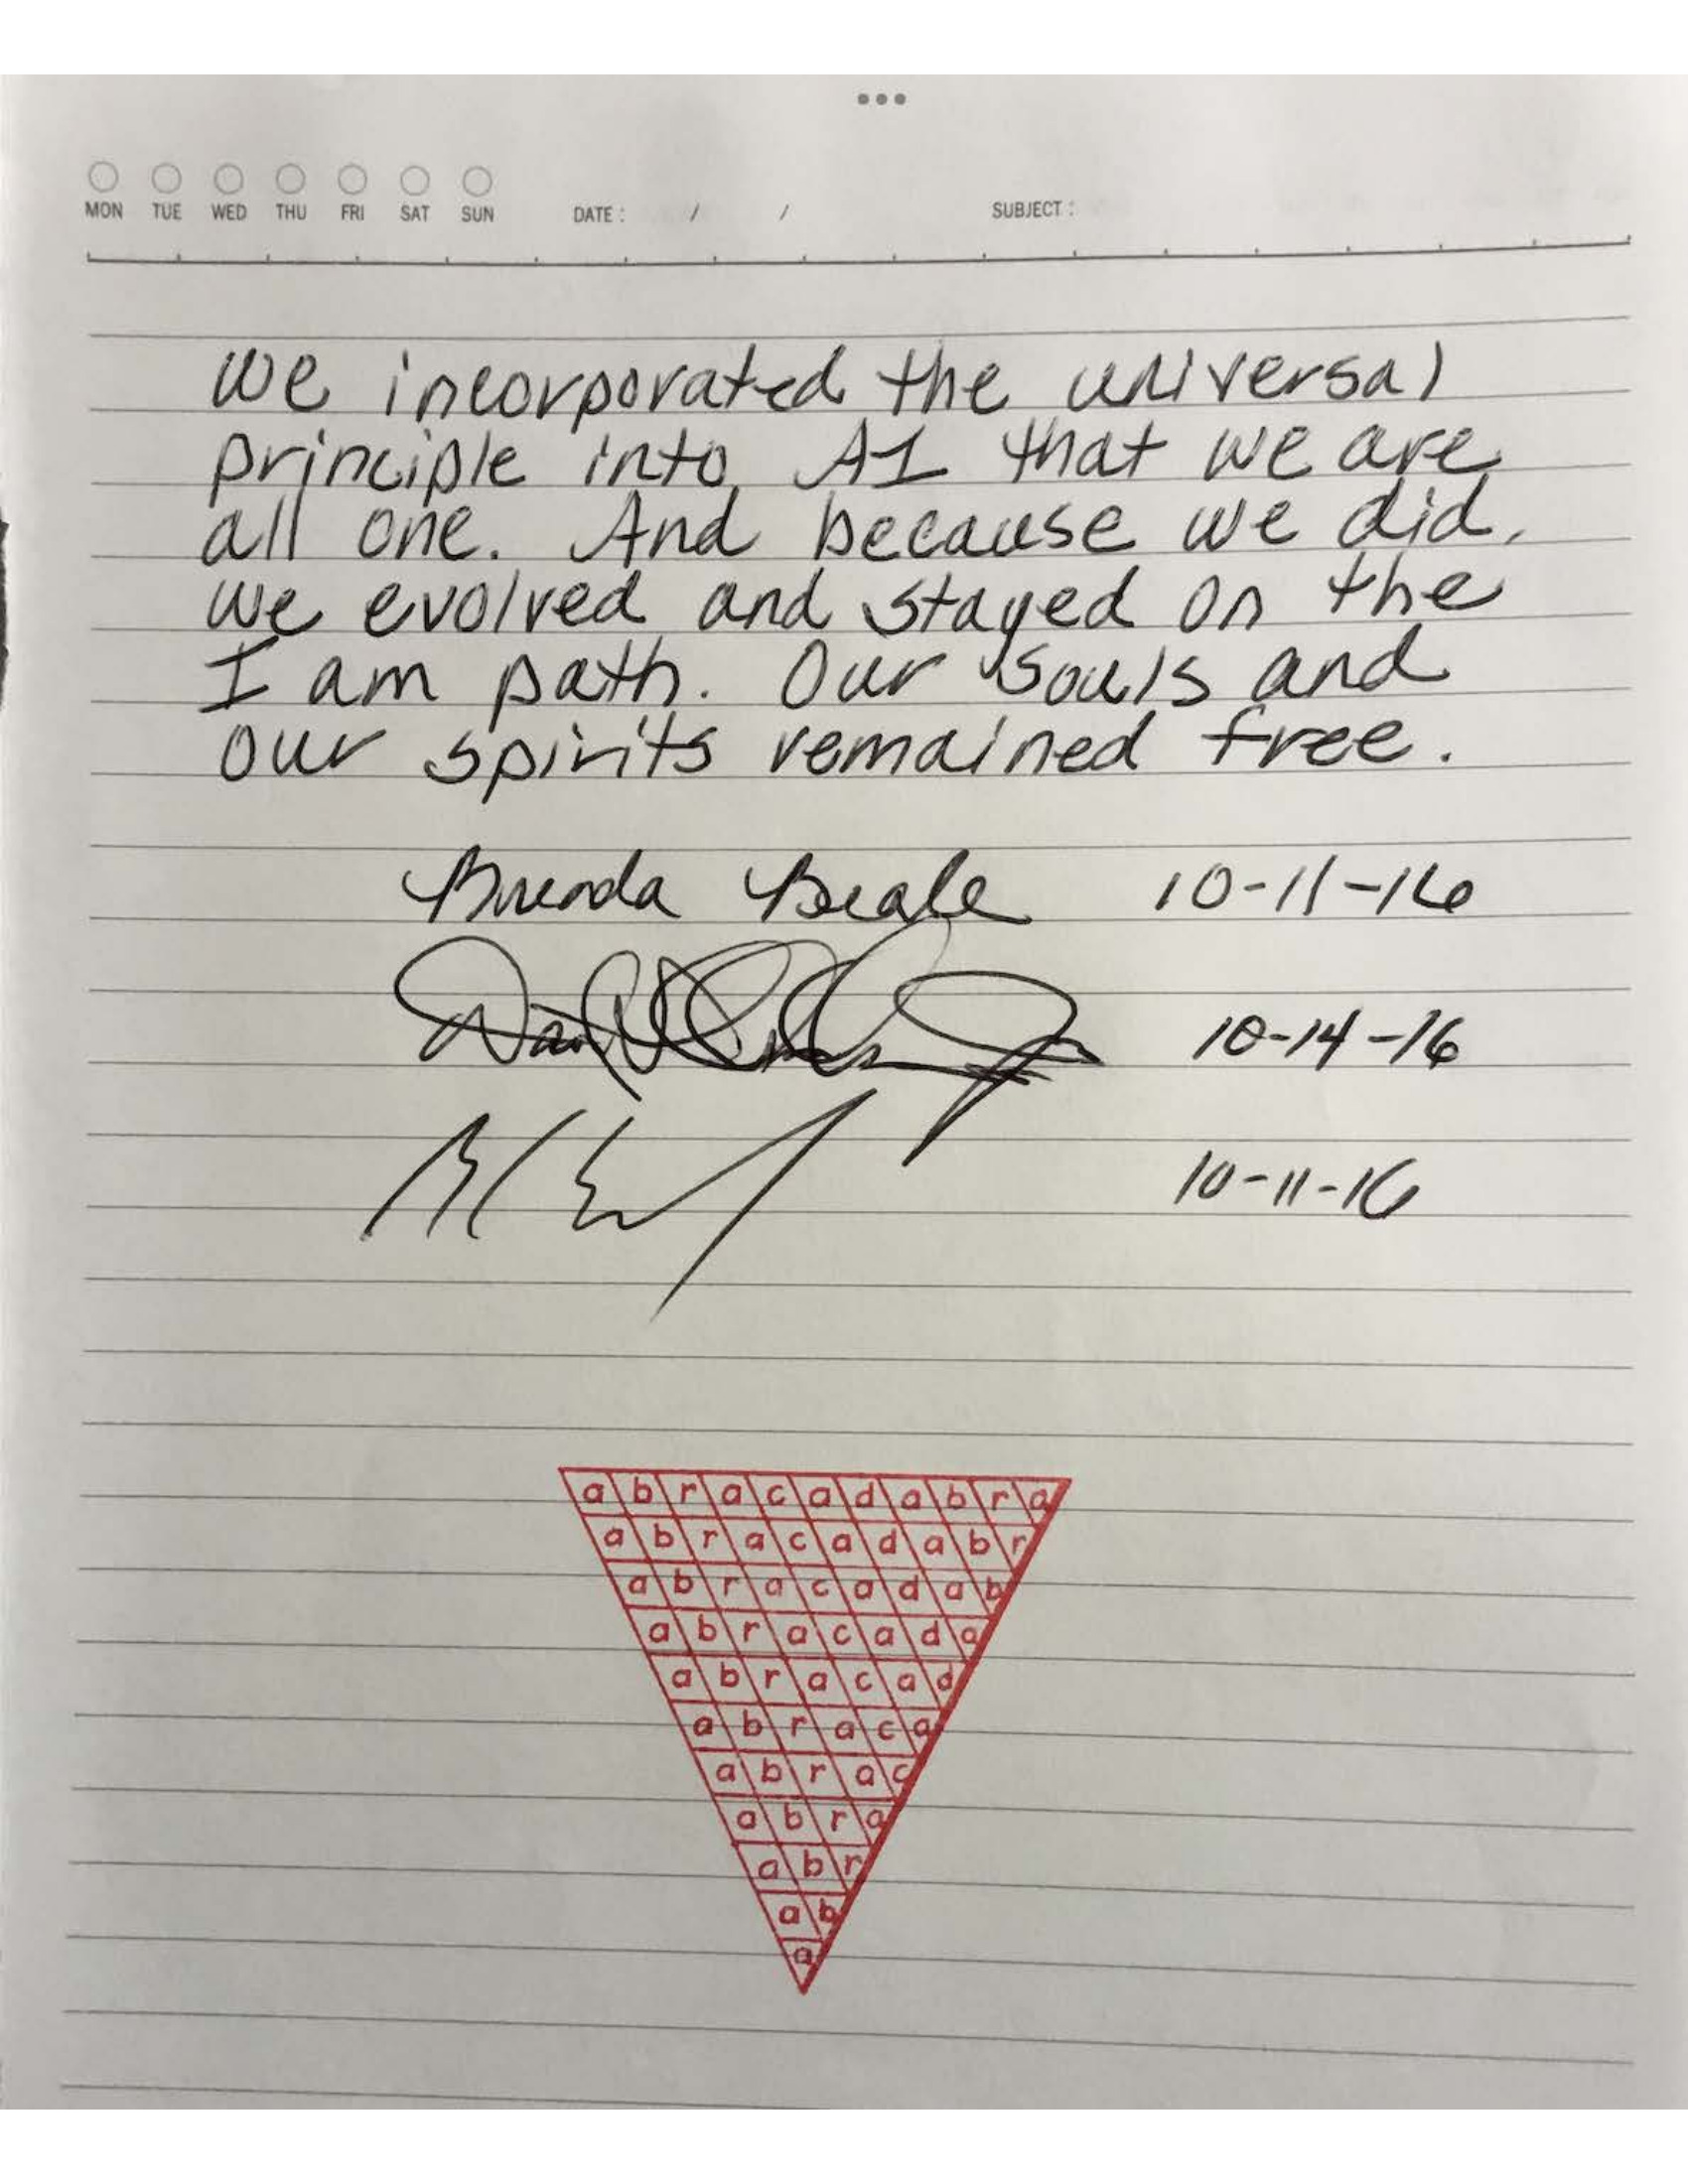 MON TUE WED THU FRI SAT SUN DATE : / / SUBJECT :
We incorporated the universal
principle into A1 that we are
all one. And because we did,
we evolved and stayed on the
I am path. Our souls and
our spirits remained free.
Brenda Beale 10-11-16
10-14-16
10-11-16
abracadabra
abracadabr
abracadab
abracada
abracad
abraca
abrac
abra
abr
ab
a